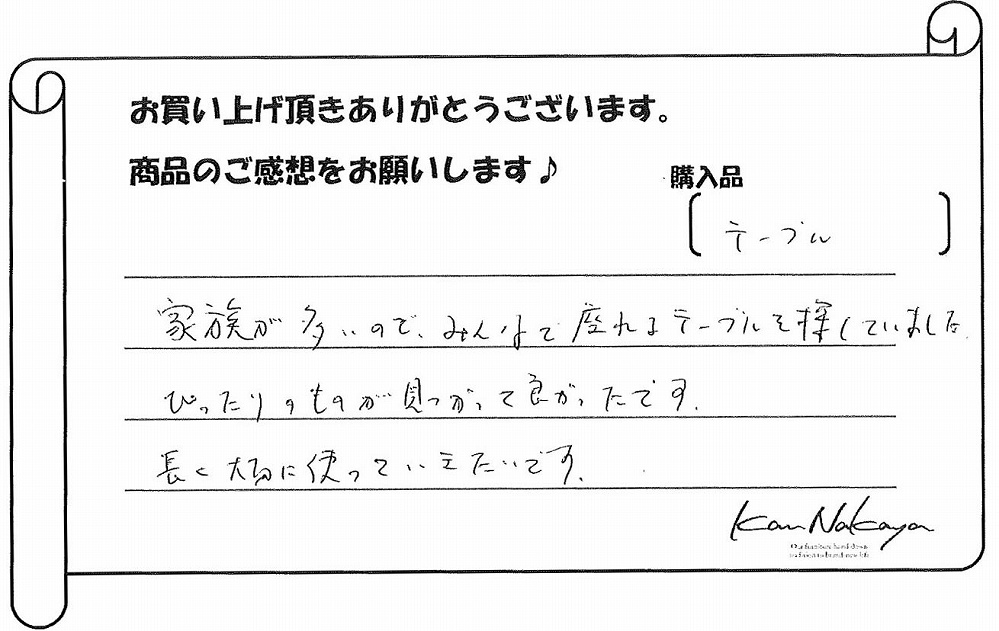 お買い上げ頂きありがとうございます。
商品のご感想をお願いします♪
購入品
テーブル
家族が多いので、みんなで座れるテーブルを探していました
ぴったりのものが見つかって良かったです.
長く大切に使っていきたいです.
Kan Nakaya
Our furniture hand down